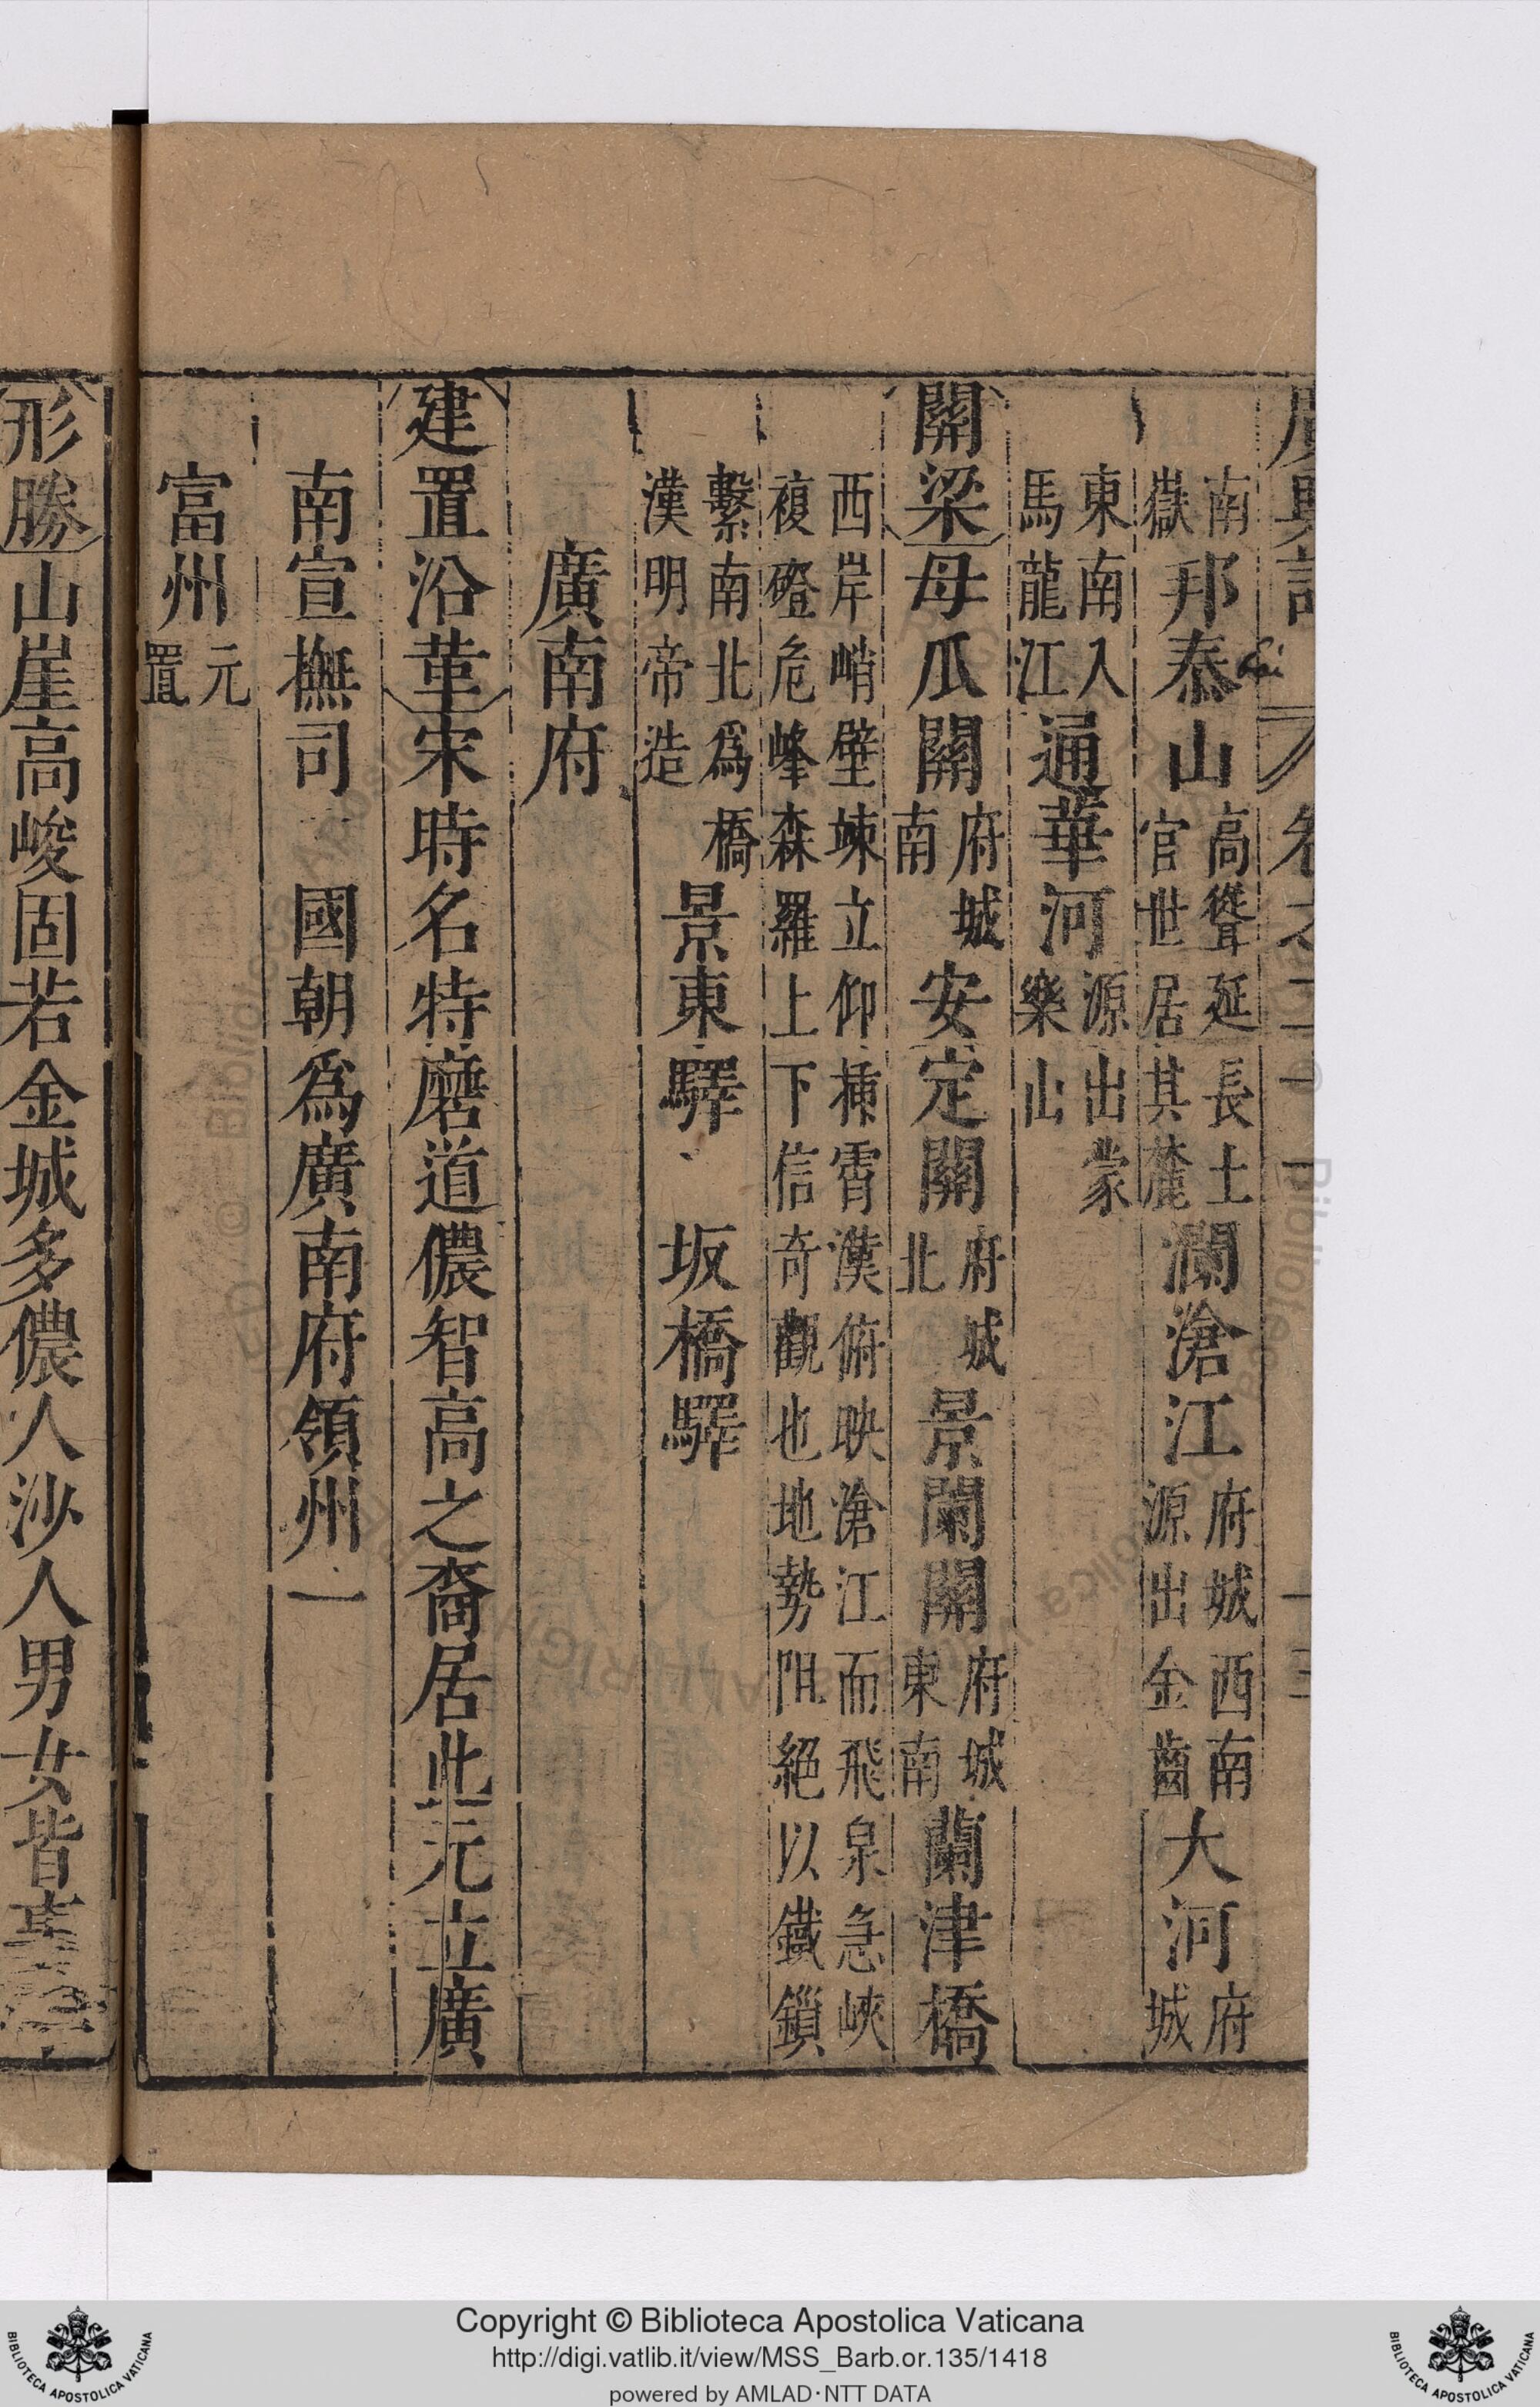 廣輿記 卷之二十一
南嶽邦泰山高聳延長土官世居其麓瀾滄江府城西南源出金齒大河府城
東南入馬龍江通華河源出蒙樂山
關梁母瓜關府城南安定關府城北景闌關府城東南蘭津橋
西岸峭壁竦立仰捶霄漢俯映滄江而飛泉急峽複磴危峰森羅上下信奇觀也地勢阻絕以鐵鎖
繫南北為橋漢明帝造景東驛 坂橋驛
廣南府
建置沿革宋時名特磨道儂智高之裔居此元立廣
南宣撫司 國朝為廣南府領州一
富州元置
形勝山崖高峻固若金城多儂人沙人男女皆
Copyright © Biblioteca Apostolica Vaticana
http://digi.vatlib.it/view/MSS_Barb.or.135/1418
powered by AMLAD·NTT DATA
BIBLIOTECA APOSTOLICA VATICANA
BIBLIOTECA APOSTOLICA VATICANA